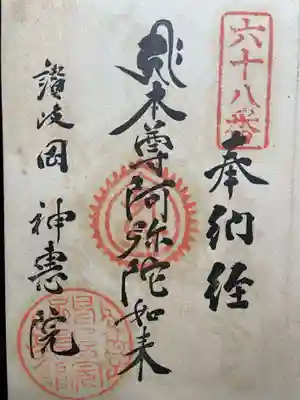 六十八番
奉納経
本尊阿弥陀如来
讃岐国
神恵院